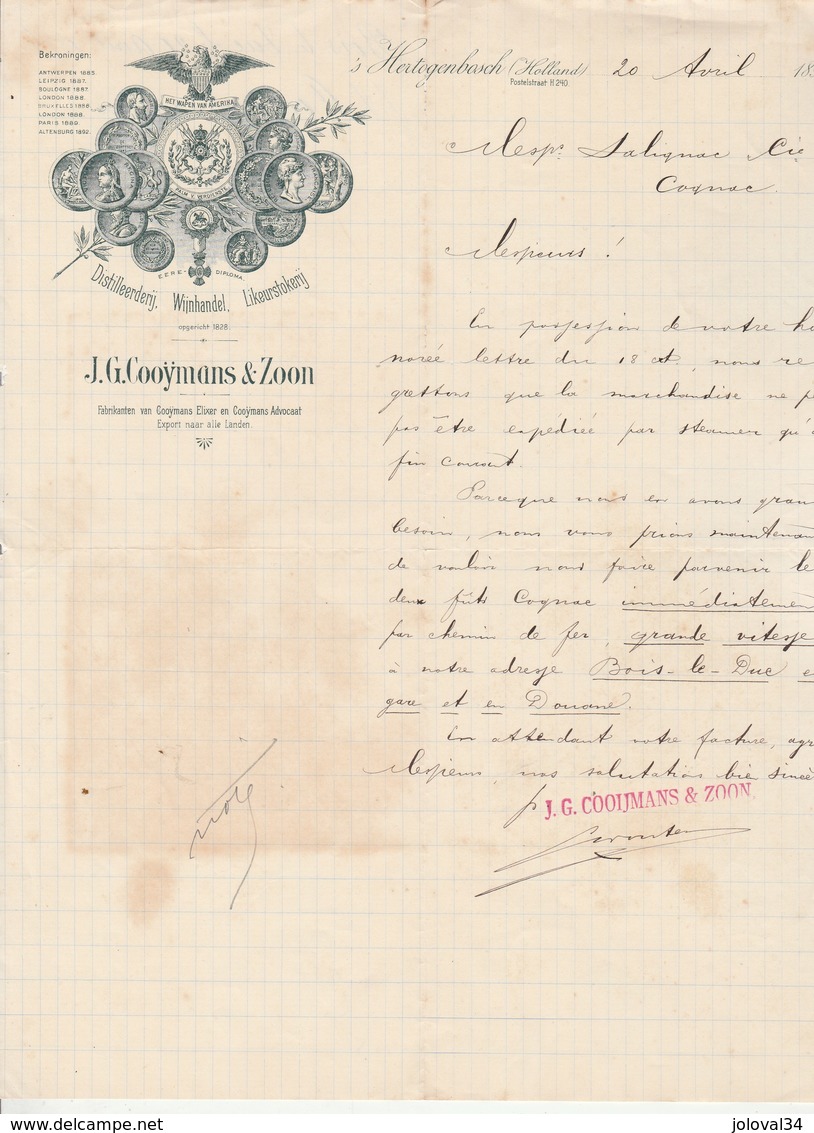 Bekroningen:
ANTWERPEN 1885.
LEIPZIG 1887.
BOULOGNE 1887.
LONDON 1888.
BRUXELLES 1888.
LONDON 1888.
PARIS 1889.
ALTENBURG 1892.
HET WAPEN VAN AMERIKA
PALM V. VERDIENSTE
EERE-DIPLOMA.
Distilleerderij, Wijnhandel, Likeurstokerij
opgericht 1828.
J.G.Cooÿmans & Zoon
Fabrikanten van Cooÿmans Elixer en Cooÿmans Advocaat
Export naar alle Landen.
's Hertogenbosch (Holland) 20 Avril 18
Postelstraat H 290.
Messrs. Salignac Cie
Cognac.
Messieurs!
En possession de votre ho
norée lettre du 18 ct., nous re
grettons que la marchandise ne p
pas être expédiée par steamer qu'
fin courant.
Parceque nous en avons gran
besoin, nous vous prions maintenan
de vouloir nous faire parvenir le
deux fûts Cognac immédiatemen
par chemin de fer, grande vitesse
à notre adresse Bois-le-Duc e
gare et en Douane.
En attendant votre facture, agr
Messieurs, nos salutations bien sincè
p J. G. COOIJMANS & ZOON.
noté
joloval34